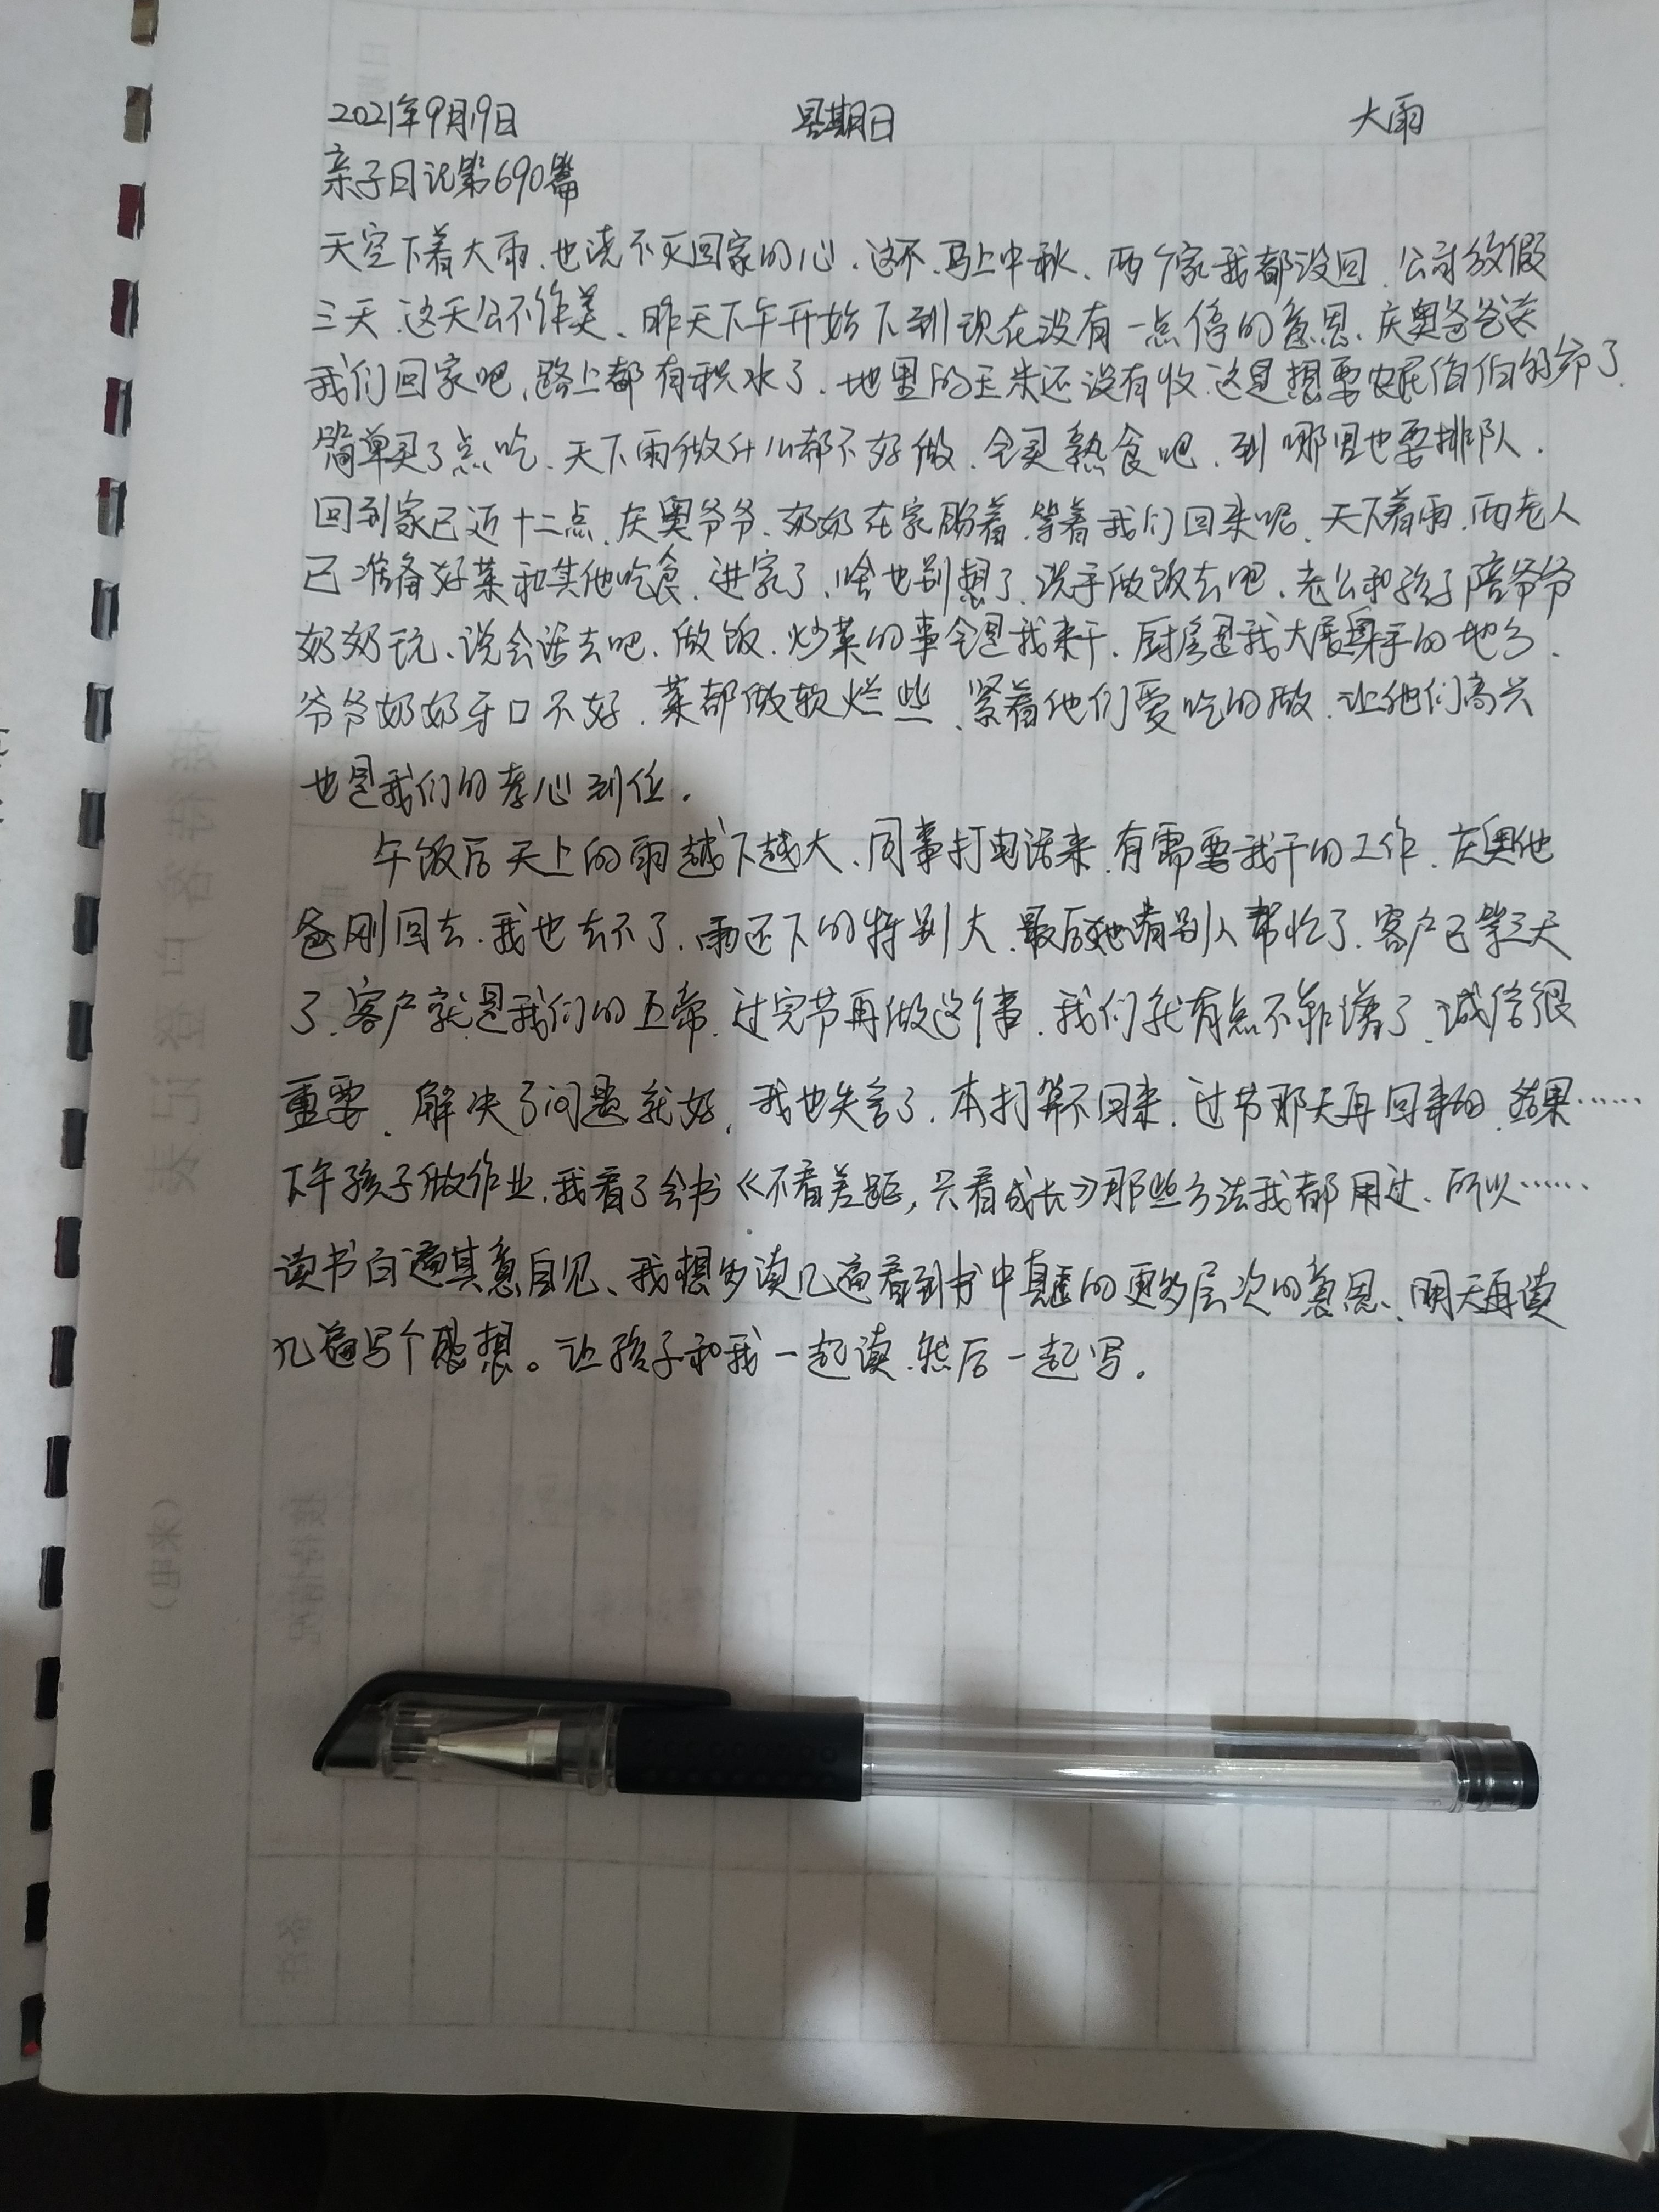 2021年9月19日 星期日 大雨
亲子日记第690篇
天空下着大雨、也浇不灭回家的心、这不、马上中秋、两个家我都没回、公司放假
三天、这天公不作美、昨天下午开始下到现在没有一点停的意思、庆奥爸爸送
我们回家吧、路上都有积水了、地里的玉米还没有收、这是想要农民伯伯的命了、
简单买了点吃、天下雨做什么都不好做、全买熟食吧、到哪里也要排队、
回到家已近十二点、庆奥爷爷、奶奶在家盼着、等着我们回来呢、天下着雨、两老人
已准备好菜和其他吃食、进家了、啥也别想了、洗手做饭去吧、老公和孩子陪爷爷
奶奶玩、说会话去吧、做饭、炒菜的事全是我来干、厨房是我大展身手的地方、
爷爷奶奶牙口不好、菜都做软烂些、紧着他们爱吃的做、让他们高兴
也是我们的孝心到位。
午饭后天上的雨越下越大、同事打电话来、有需要我干的工作、庆奥他
爸刚回去、我也去不了、雨还下的特别大、最后她请别人帮忙了、客户已等三天
了、客户就是我们的上帝、过完节再做这个事、我们就有点不靠谱了、诚信很
重要、解决了问题就好、我也失言了、本打算不回来、过节那天再回来的、结果……
下午孩子做作业、我看了会书《不看差距,只看成长》那些方法我都用过、所以……
读书百遍其意自见、我想多读几遍看到书中真正的更多层次的意思、明天再读
几遍写个感想。让孩子和我一起读、然后一起写。